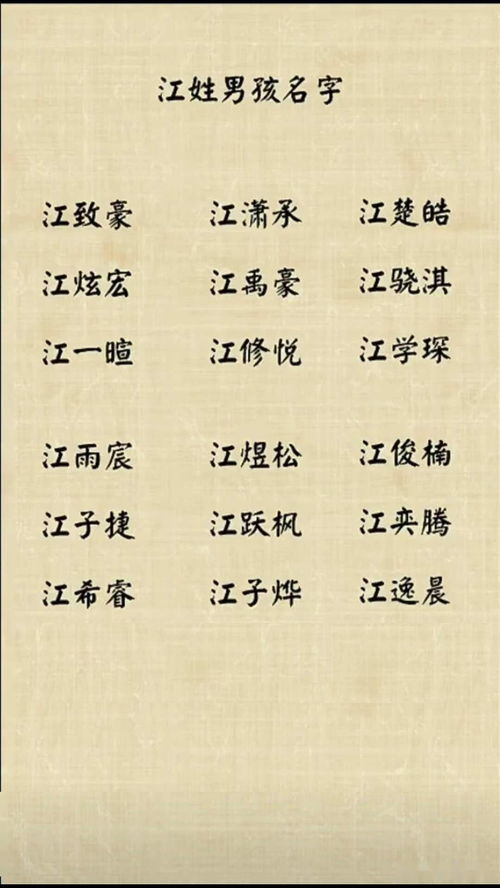 江姓男孩名字
江致豪 江潇承 江楚皓
江炫宏 江禹豪 江骁淇
江一暄 江修悦 江学琛
江雨宸 江煜松 江俊楠
江子捷 江跃枫 江奕腾
江希睿 江子烨 江逸晨